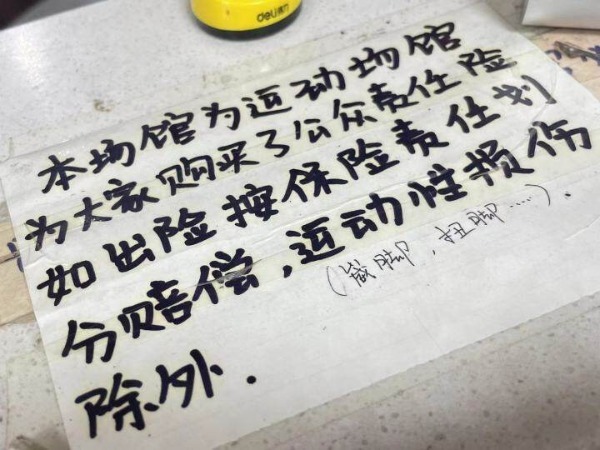 deli得力
本场馆为运动场馆
为大家购买了公众责任险
如出险按保险责任划
分赔偿,运动性损伤
(崴脚,扭脚……).
除外.